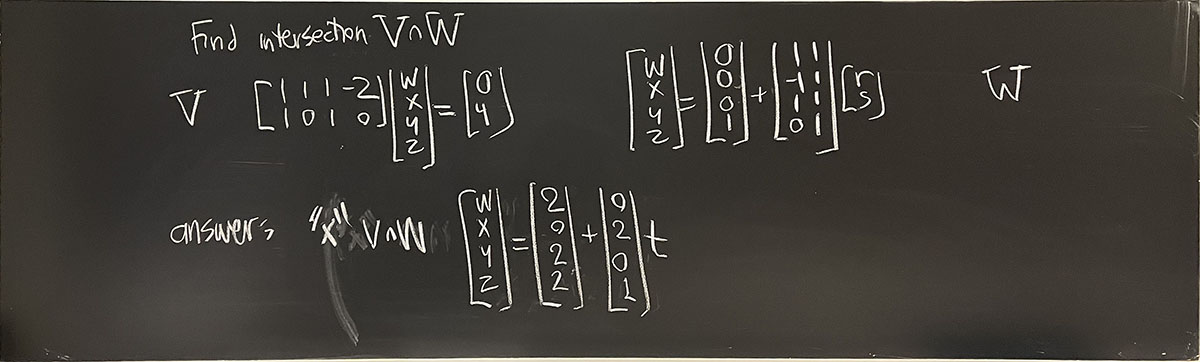 Find intersection V∩W
V [1 1 1 -2; 1 0 1 0] [w; x; y; z] = [0; 4]   [w; x; y; z] = [0; 0; 0; 1] + [1 1; -1 1; 1 1; 0 1] [r; s]   W
answer: "x" V∩W [w; x; y; z] = [2; 0; 2; 2] + [0; 2; 0; 1] t